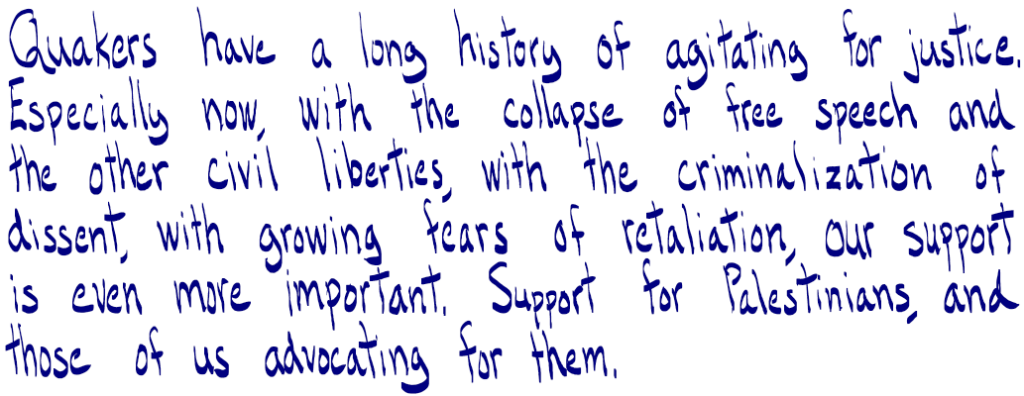 Quakers have a long history of agitating for justice.
Especially now, with the collapse of free speech and
the other civil liberties, with the criminalization of
dissent, with growing fears of retaliation, our support
is even more important. Support for Palestinians, and
those of us advocating for them.